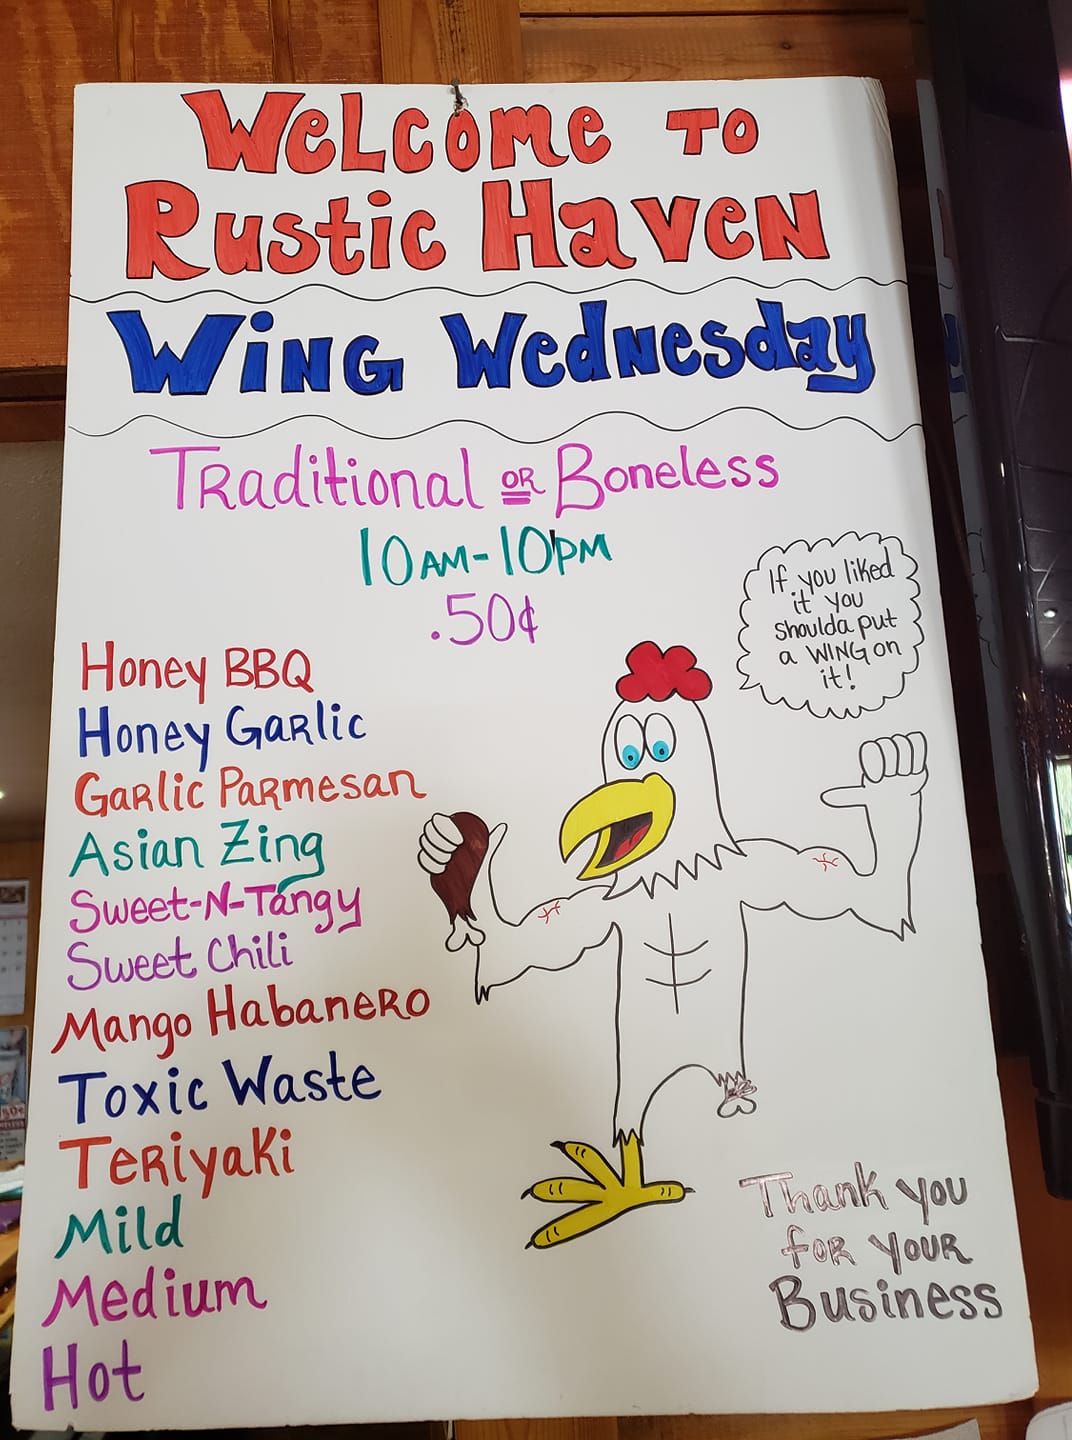 Welcome to
Rustic Haven
Wing Wednesday
Traditional or Boneless
10am-10pm
.50¢
If you liked
it you
shoulda put
a WING on
it!
Honey BBQ
Honey Garlic
Garlic Parmesan
Asian Zing
Sweet-N-Tangy
Sweet Chili
Mango Habanero
Toxic Waste
Teriyaki
Mild
Medium
Hot
Thank you
for your
Business